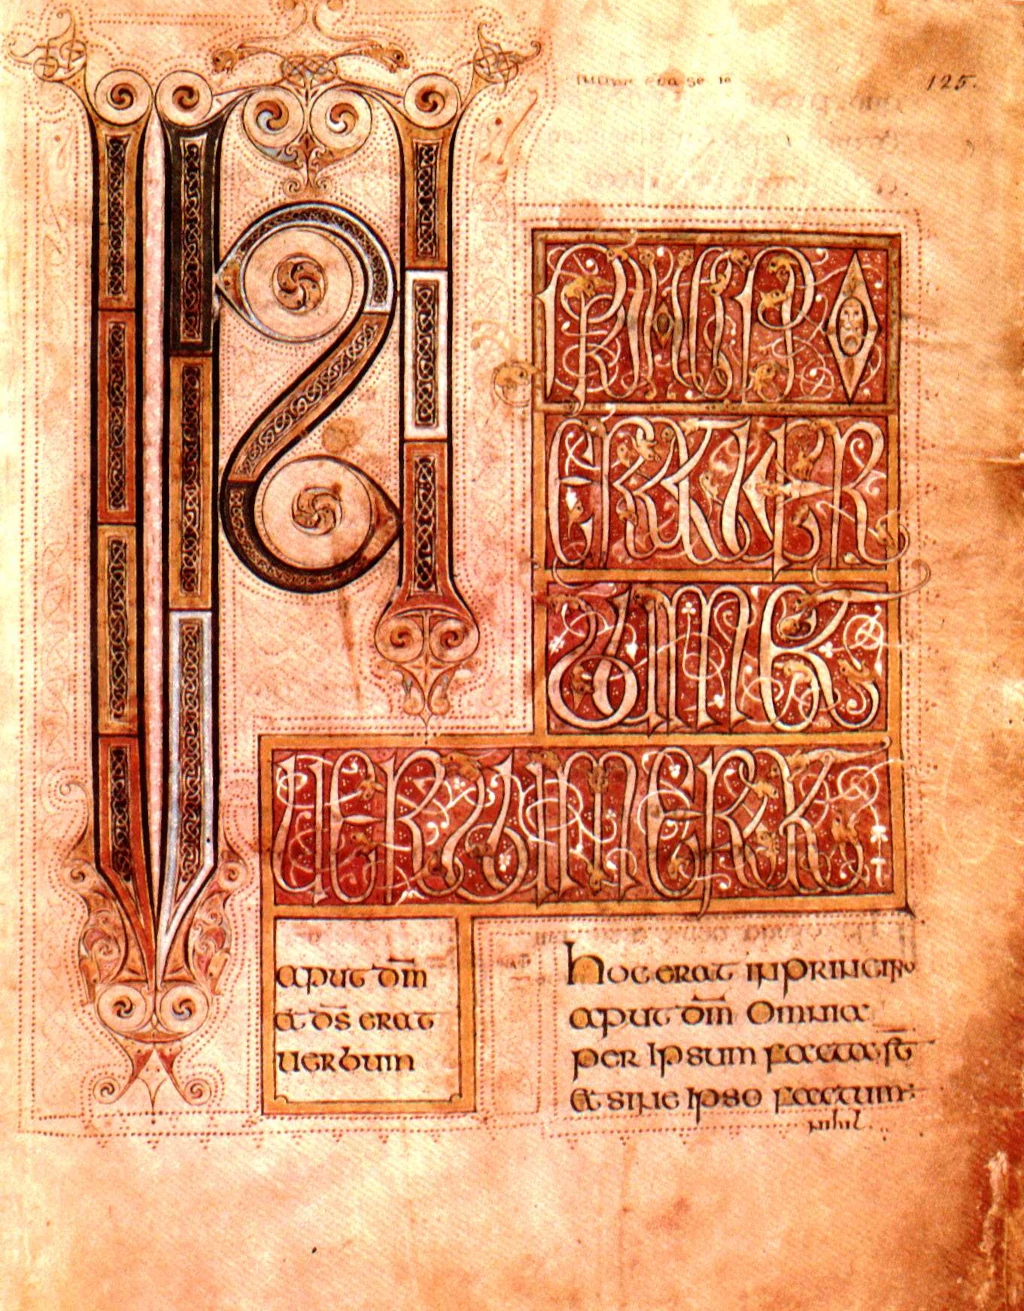 125.
INP
RINCIPIO
ERAT UER
BUM ET
UERBUM ERAT
aput dm̄
et ds̄ erat
uerbum
hoc erat in principio
aput dm̄ Omnia
per ipsum facta st̄
et sine ipso factum:
nihil.